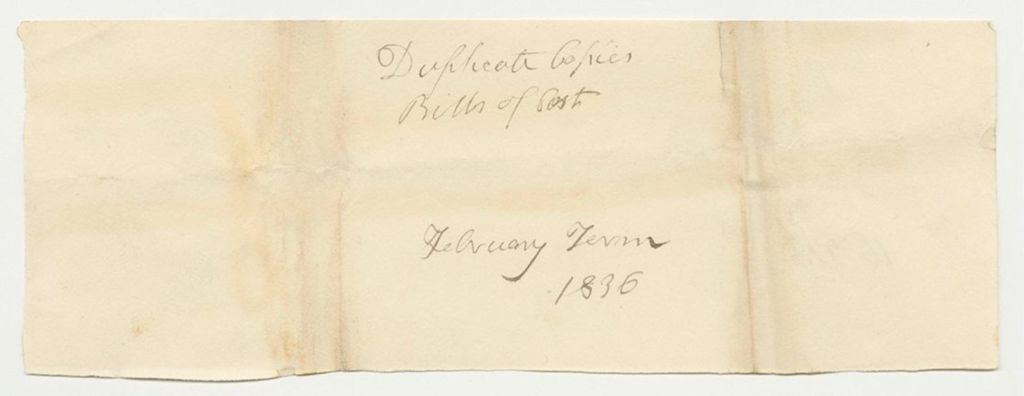 Duplicate Copies
Bills of Cost
February Term
1836